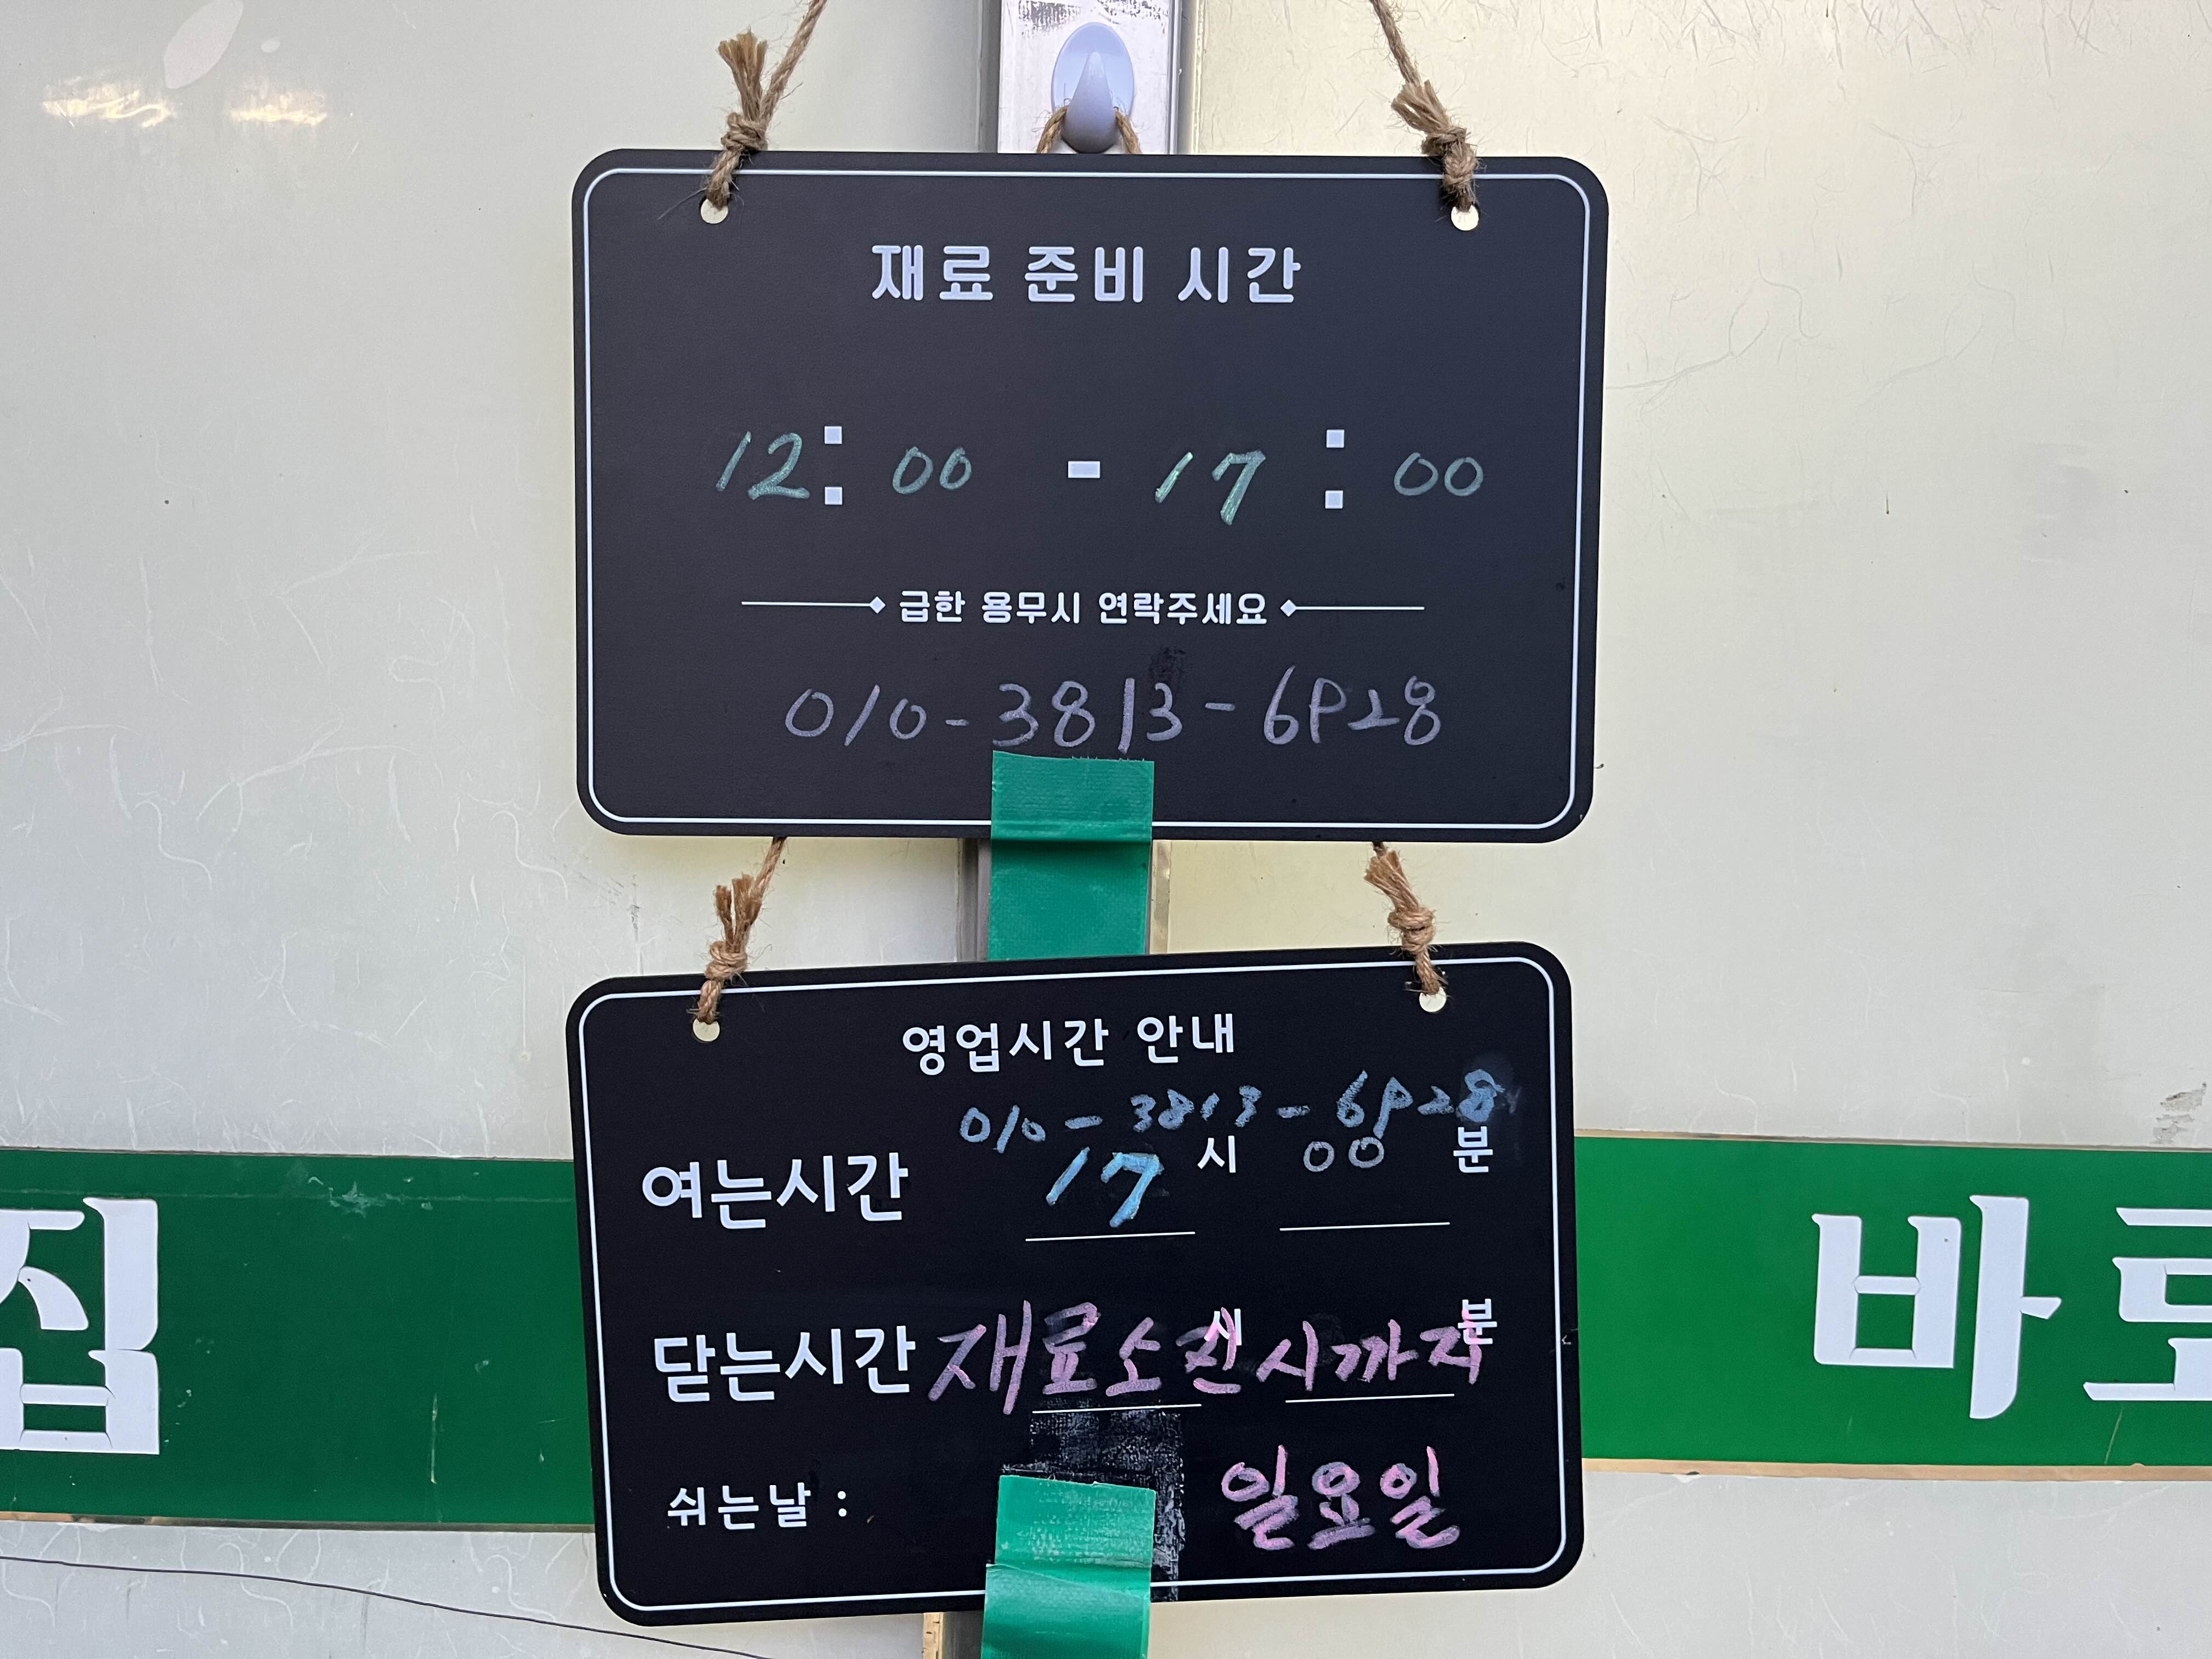 재료 준비 시간
12:00 - 17:00
급한 용무시 연락주세요
010-3813-6928
영업시간 안내
010-3813-6928
여는시간 17시 00분
닫는시간 재료소진시까지 시 분
쉬는날 : 일요일
집
바로